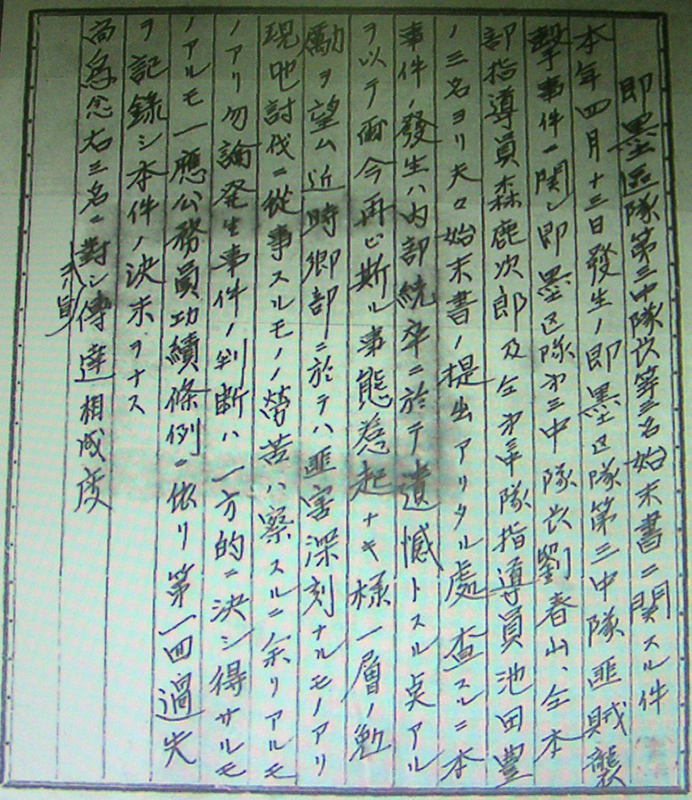 即墨區隊第三中隊長等三名始末書ニ関スル件
本年四月十三日發生ノ即墨區隊第三中隊匪賊襲
撃事件ニ関シ即墨区隊第三中隊长劉春山、仝本
部指導員森鹿次郎及仝第三中隊指導員池田豊
ノ三名ヨリ夫々始末書ノ提出アリタル處査スルニ本
事件ノ發生ハ内部統卒ニ於テ遺憾トスル点アル
ヲ以テ爾今再ビ斯ル事態惹起ナキ様一層ノ勉
勵ヲ望ム近時郷部ニ於テハ匪害深刻ナルモノアリ
現地討伐ニ從事スルモノノ労苦ハ察スルニ余リアルモ
ノアリ勿論発生事件ノ判断ハ一方的ニ決シ得サルモ
ノアルモ一應公務員功績條例ニ依リ第一回過失
ヲ記録シ本件ノ決末ヲナス
尚為念右三名ニ對シ傳達相成度